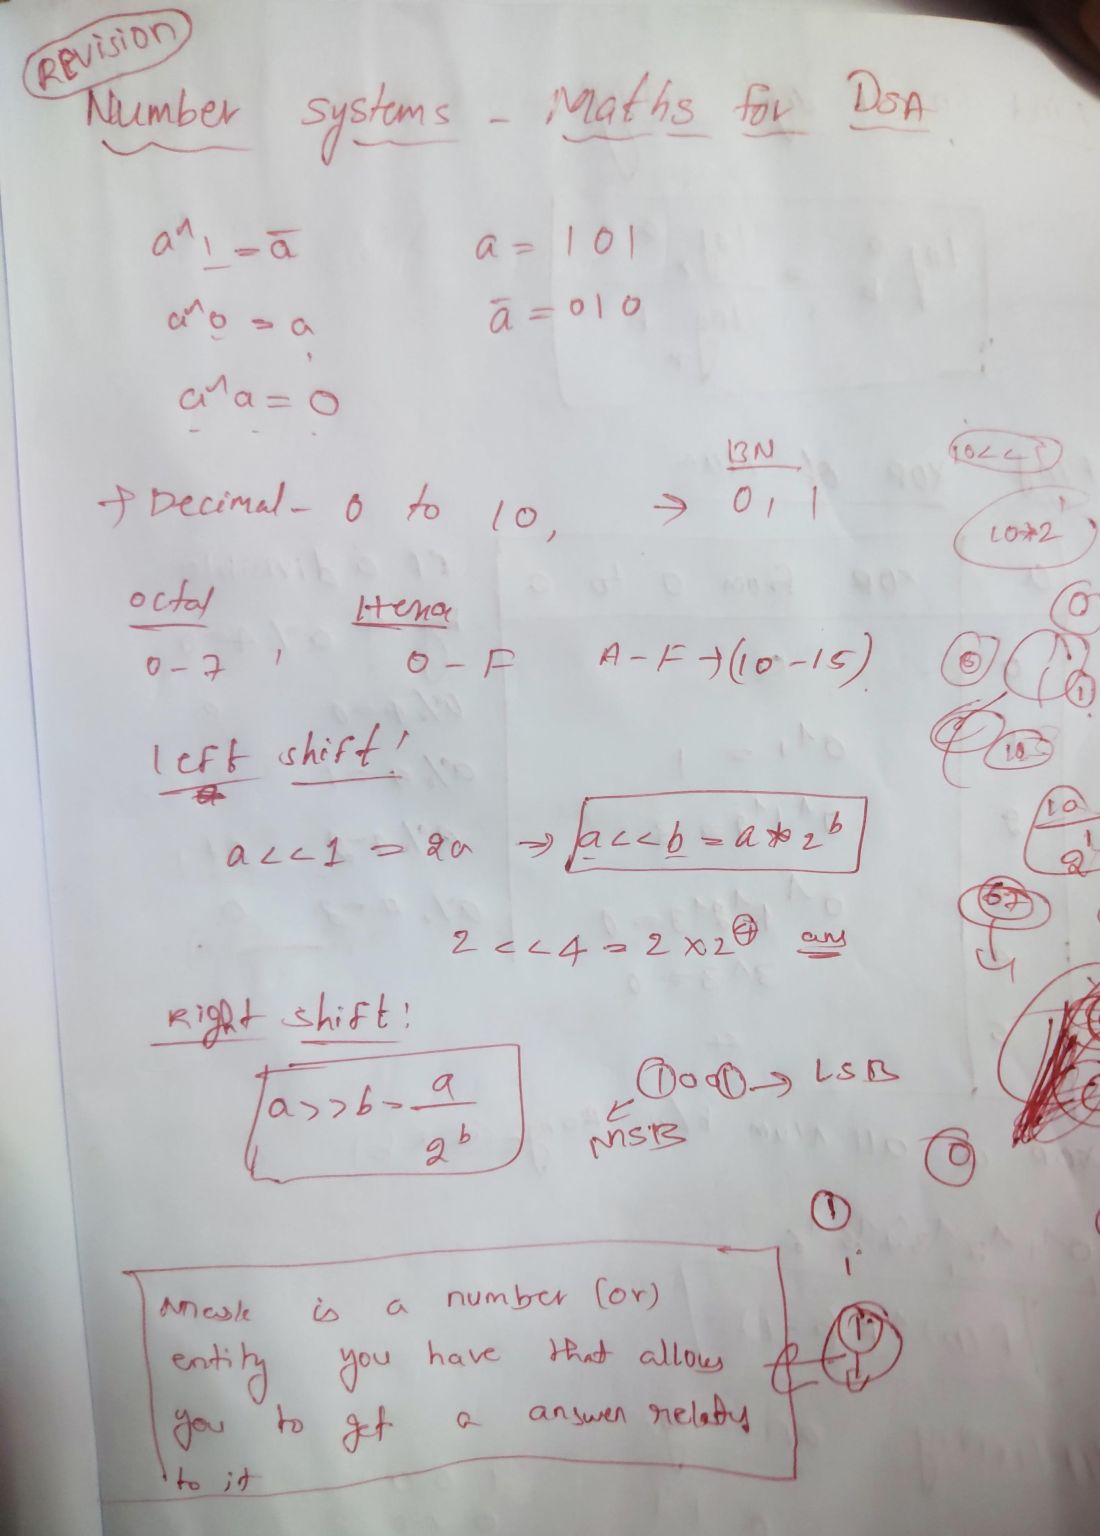 REVISION
Number systems - Maths for DSA
a^1 = ā
a = 101
a^0 = a
ā = 010
a^a = 0
BN
→ Decimal - 0 to 10, → 0, 1
10<<1
10*2¹
octal Hexa
0-7, 0-F A-F→(10-15)
left shift!
a<<1 = 2a → a<<b = a*2^b
10
2¹
2<<4 = 2×2^4 ans
67
Right shift!
a>>b = a/2^b
1001 → LSB
MSB
0
1
1
1
Mask is a number (or)
entity you have that allows
you to get a answer relatus
to it